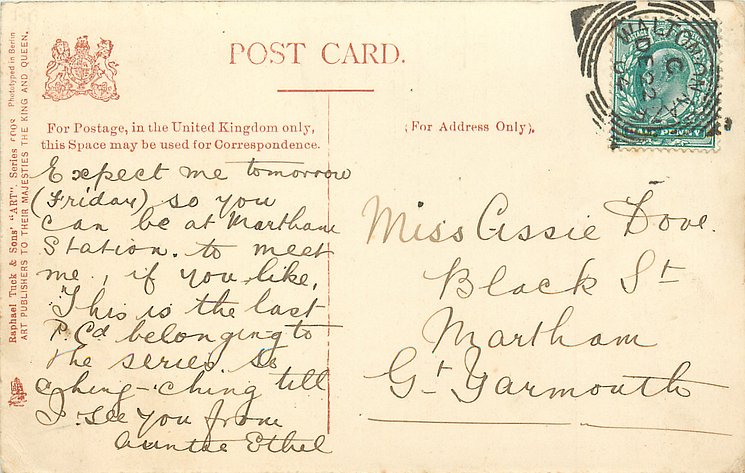 POST CARD.
For Postage, in the United Kingdom only,
this Space may be used for Correspondence.
(For Address Only).
Raphael Tuck & Sons' "ART" Series Phototyped in Berlin
ART PUBLISHERS TO THEIR MAJESTIES THE KING AND QUEEN.
WALTON-ON-NAZE
C
DE 22
Expect me tomorrow
(Friday) so you
can be at Martham
Station. to meet
me, if you like,
This is the last
P. Cd belonging to
the series. So
Ching-Ching till
I see you from
Auntie Ethel
Miss Cissie Dove.
Black St
Martham
Gt Yarmouth